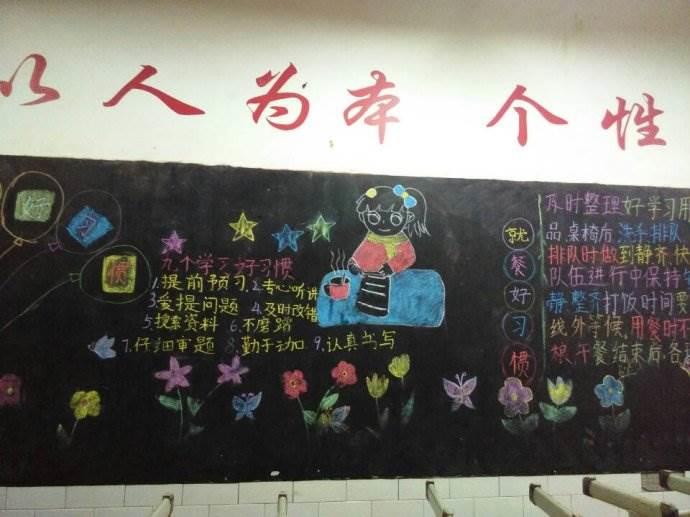 以人为本 个性
好
习
惯
九个学习好习惯
1.提前预习 2.专心听讲
3.爱提问题 4.及时改错
5.搜索资料 6.不磨蹭
7.仔细审题 8.勤于动
9.认真书写
就
餐
好
习
惯
及时整理好学习用
品,桌椅后,洗手排队,
排队时做到静齐快
队伍进行中保持
静,整齐打饭时间要
线外等候,用餐时不
午餐结束后,各